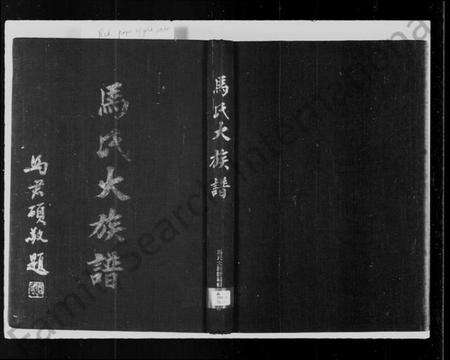 馬氏大族譜
馬君碩敬題
馬氏大族譜
FamilySearch International